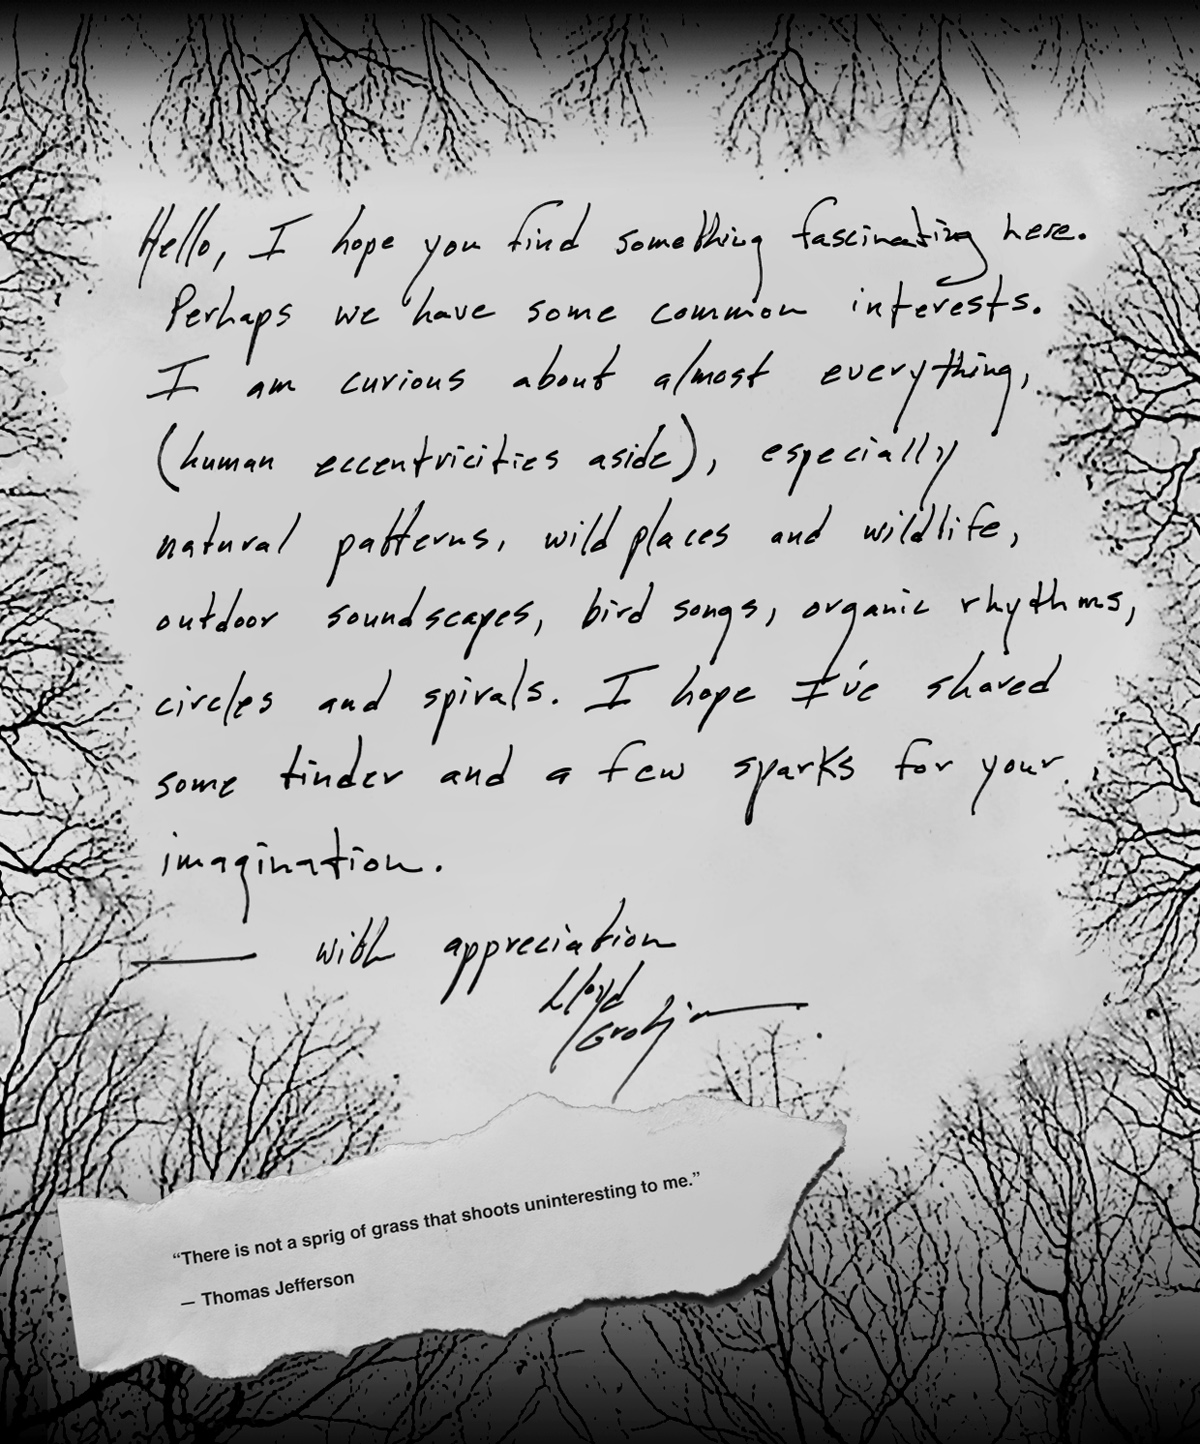 Hello, I hope you find something fascinating here.
Perhaps we have some common interests.
I am curious about almost everything,
(human eccentricities aside), especially
natural patterns, wild places and wildlife,
outdoor soundscapes, bird songs, organic rhythms,
circles and spirals. I hope I've shared
some tinder and a few sparks for your
imagination.
— with appreciation
Lloyd
“There is not a sprig of grass that shoots uninteresting to me.”
— Thomas Jefferson